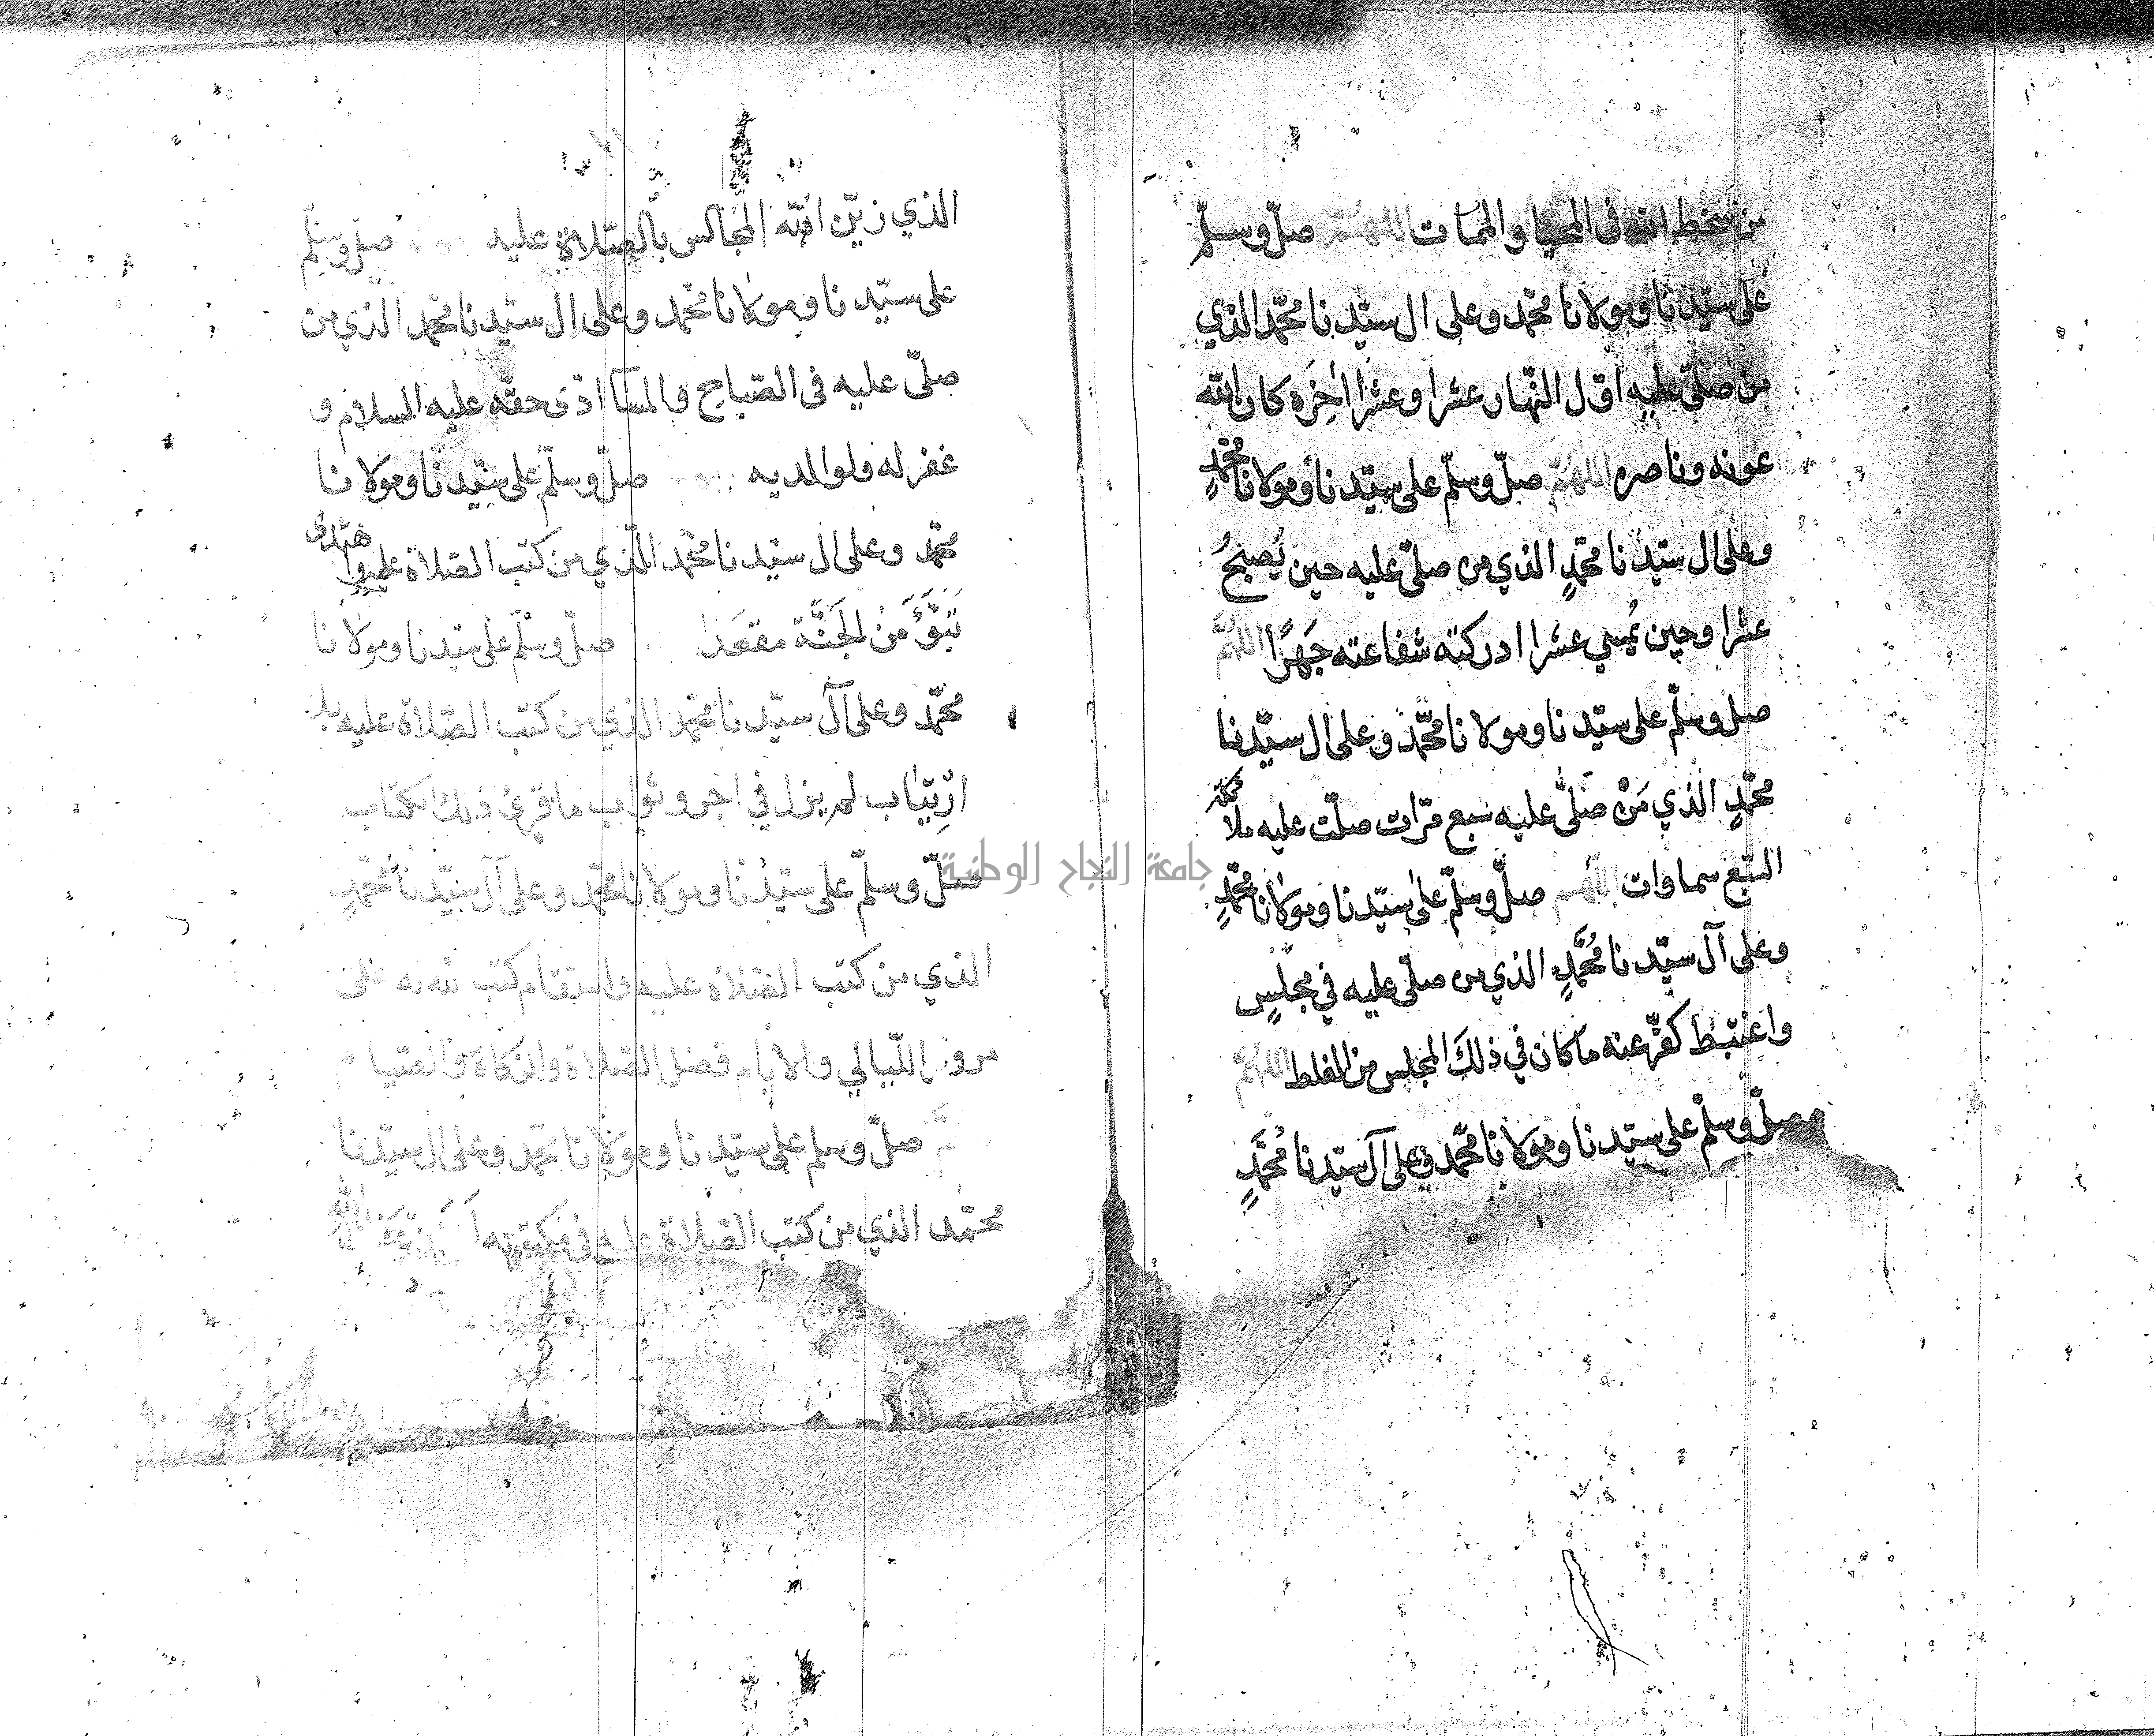 من سخط الله فى المحيا والممات اللهُمّ صلّ وسلّم
على سيّدنا ومولانا محمّد وعلى ال سيّدنا محمّد الذي
من صلّى عليه اوّل النّهار عشرا وعشرا اٰخِرَه كان الله
عونه وناصره اللهُمّ صلّ وسلّم على سيّدنا ومولانا مُحمّدٍ
وعلى ال سيّدنا محمّدٍ الذي من صلّى عليه حين يُصبحُ
عشرا وحين يُمسي عشرا ادركته شفاعته جَهرًا اللهُمَّ
صل وسلّم على سيّدنا ومولانا محمّد وعلى ال سيّدنا
محمّدٍ الذي مَنْ صلّى عليه سبع مرّات صلّت عليه ملائكة
السّبع سماوات اللّهم صلّ وسلّم على سيّدنا ومولانا محمّدٍ
وعلى آل سيّدنا مُحَمَّدٍ الذي من صلّى عليه في مجلسٍ
واغتبط كفّر عنه ما كان في ذلكَ المجلس من الغلط اللهُمّ
صلّ وسلّم على سيّدنا ومولانا محمّد وعلى آل سيّدنا مُحَمَّدٍ
الذي زيّن الله المجالس بالصّلاة عليه صلّ وسلّم
على سيّدنا ومولانا محمّد وعلى ال سيّدنا محمّد الذي من
صلّى عليه فى الصّباح والمسآ ادّى حقّه عليه السلام و
غفر له ولوالديه صلّ وسلّم على سيّدنا ومولانا
محمّد وعلى ال سيّدنا محمّد الّذي من كتب الصّلاة عليه
تَبَوَّأَ مَنْ الجَنَّة مقعَدا صلّ وسلّم على سيّدنا ومولانا
محمّد وعلى آل سيّدنا محمّد الذي من كتب الصّلاة عليه بلا
ارْتِيَاب لم يزل في اجر وثواب ما قرئ ذلك الكتاب
صلّ وسلّم على سيّدنا ومولانا محمّد وعلى آل سيّدنا مُحمّدٍ
الذي من كتب الصّلاة عليه واستقام كتب الله له على
مرور اللّيالي والايام فضل الصّلاة والزكاة والصّيام
صلّ وسلم على سيّدنا ومولانا محمّد وعلى ال سيّدنا
محمّد الذي من كتب الصّلاة عليه في
جامعة النجاح الوطنية